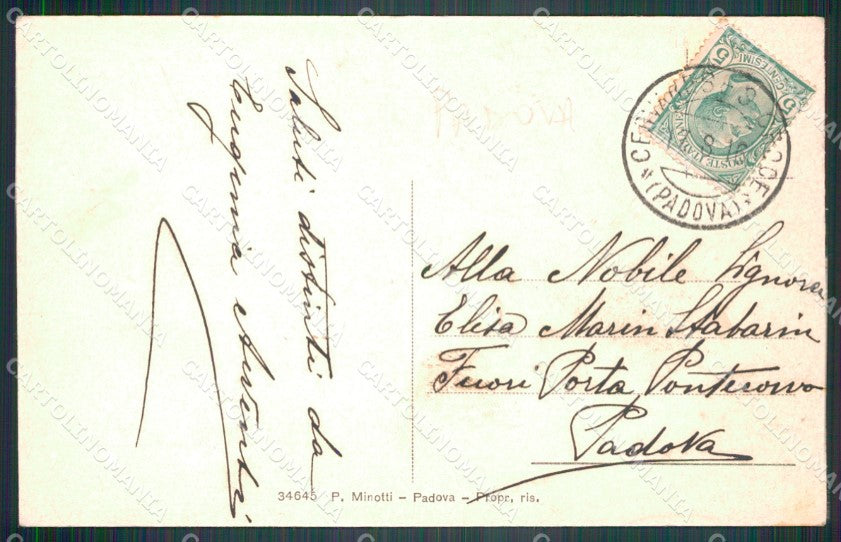 Saluti distinti da
Eugenia Aventi
Alla Nobile Signora
Elisa Marin Stabarin
Fuori Porta Pontecorvo
Padova
(PADOVA)
POSTE ITALIANE
CENTESIMI
5
5
34645 P. Minotti – Padova – Propr. ris.
CARTOLINOMANIA